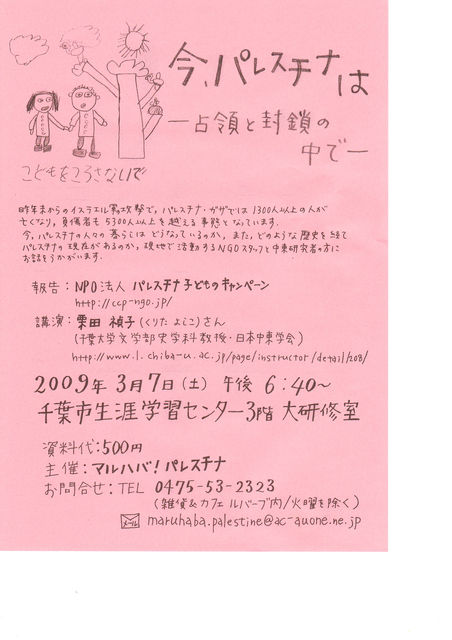 今、パレスチナは
―占領と封鎖の
中で―
こどもをころさないで
昨年末からのイスラエル軍攻撃で、パレスチナ・ガザでは1300人以上の人が
亡くなり、負傷者も5300人以上を越える事態となっています。
今、パレスチナの人々の暮らしはどうなっているのか、また、どのような歴史を経て
パレスチナの現在があるのか、現地で活動するNGOスタッフと中東研究者の方に
お話をうかがいます。
報告：NPO法人 パレスチナ子どものキャンペーン
http://ccp-ngo.jp/
講演：栗田 禎子（くりた よしこ）さん
（千葉大学文学部史学科教授・日本中東学会）
http://www.l.chiba-u.ac.jp/page/instructor/detail/208/
2009年3月7日（土）午後 6:40～
千葉市生涯学習センター3階 大研修室
資料代：500円
主催：マルハバ！パレスチナ
お問合せ：TEL 0475-53-2323
（雑貨&カフェ ルバーブ内/火曜を除く）
メール maruhaba.palestine@ac-auone.ne.jp